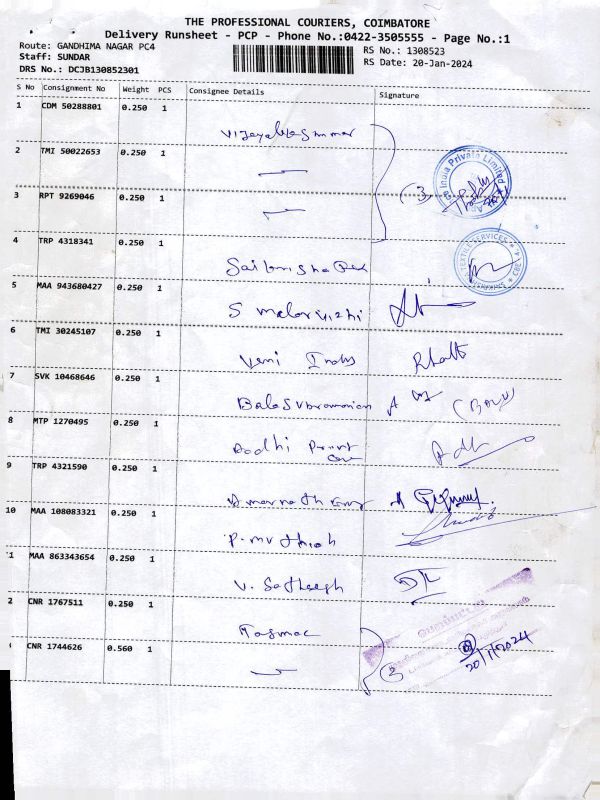 THE PROFESSIONAL COURIERS, COIMBATORE
Delivery Runsheet - PCP - Phone No.:0422-3505555 - Page No.:1
Route: GANDHIMA NAGAR PC4
RS No.: 1308523
Staff: SUNDAR
RS Date: 20-Jan-2024
DRS No.: DCJB130852301
S No Consignment No Weight PCS Consignee Details Signature
1 CDM 50288801 0.250 1
2 TMI 50022653 0.250 1
3 RPT 9269046 0.250 1
(3)
India Private Limited
4 TRP 4318341 0.250 1
5 MAA 943680427 0.250 1
S malarvizhi
6 TMI 30245107 0.250 1
Veni Indus
7 SVK 10468646 0.250 1
Balasubramanian (BALU)
8 MTP 1270495 0.250 1
9 TRP 4321590 0.250 1
10 MAA 108083321 0.250 1
P. muthiah
1 MAA 863343654 0.250 1
V. Satheesh
2 CNR 1767511 0.250 1
Tasmac
CNR 1744626 0.560 1
20/1/2024